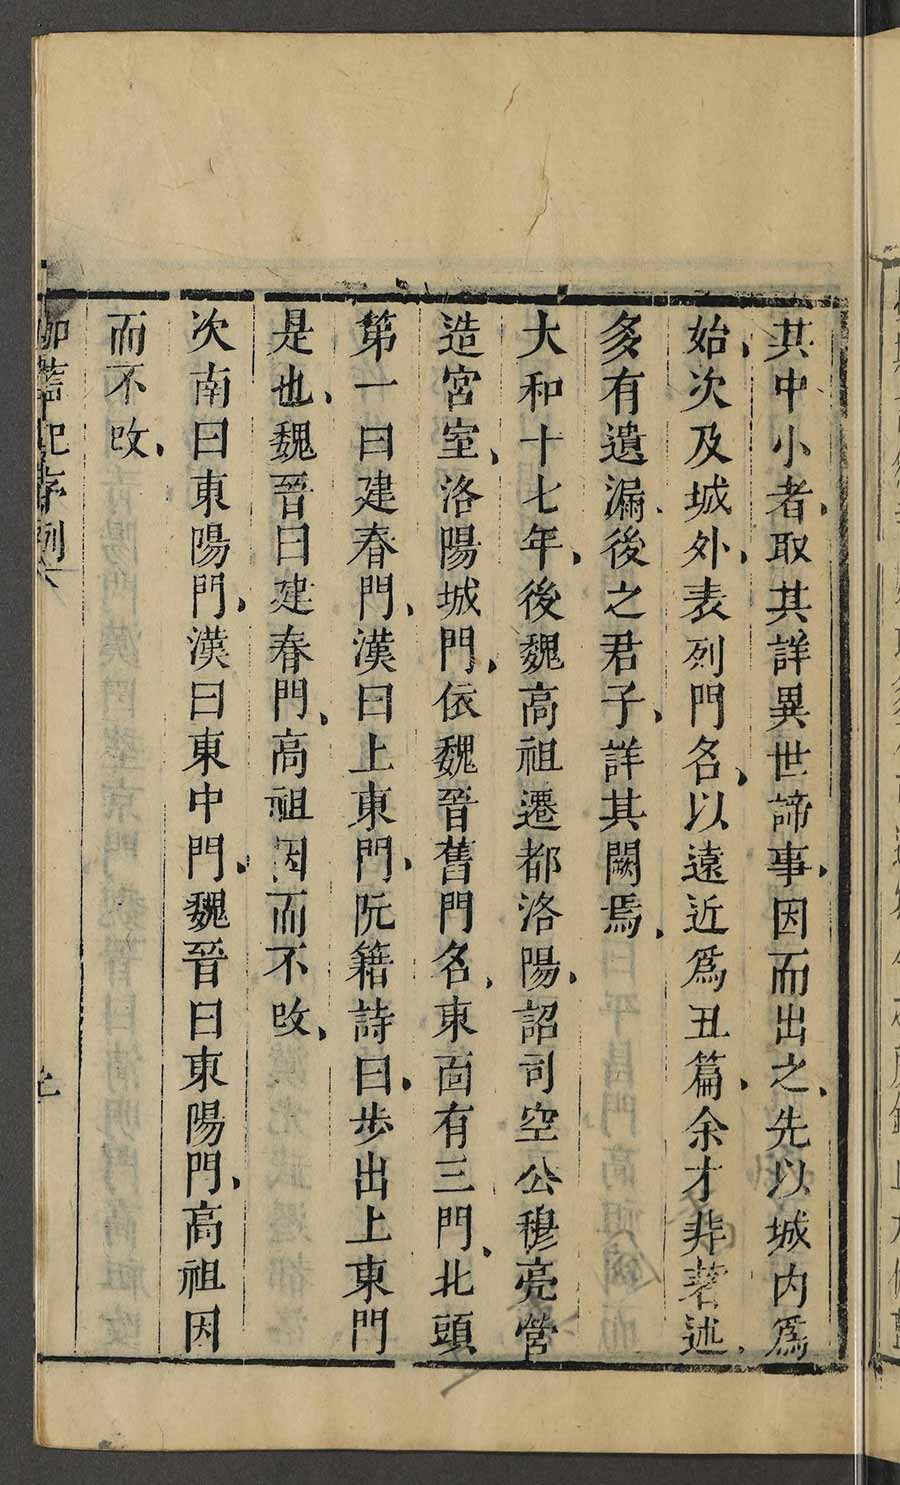 其中小者取其詳異世諦事因而出之先以城内爲
始次及城外表列門名以遠近爲五篇余才非著述
多有遺漏後之君子詳其闕焉
大和十七年後魏高祖遷都洛陽詔司空公穆亮營
造宮室洛陽城門依魏晉舊門名東面有三門北頭
第一曰建春門漢曰上東門阮籍詩曰步出上東門
是也魏晉曰建春門高祖因而不改
次南曰東陽門漢曰東中門魏晉曰東陽門高祖因
而不改
伽藍記序例